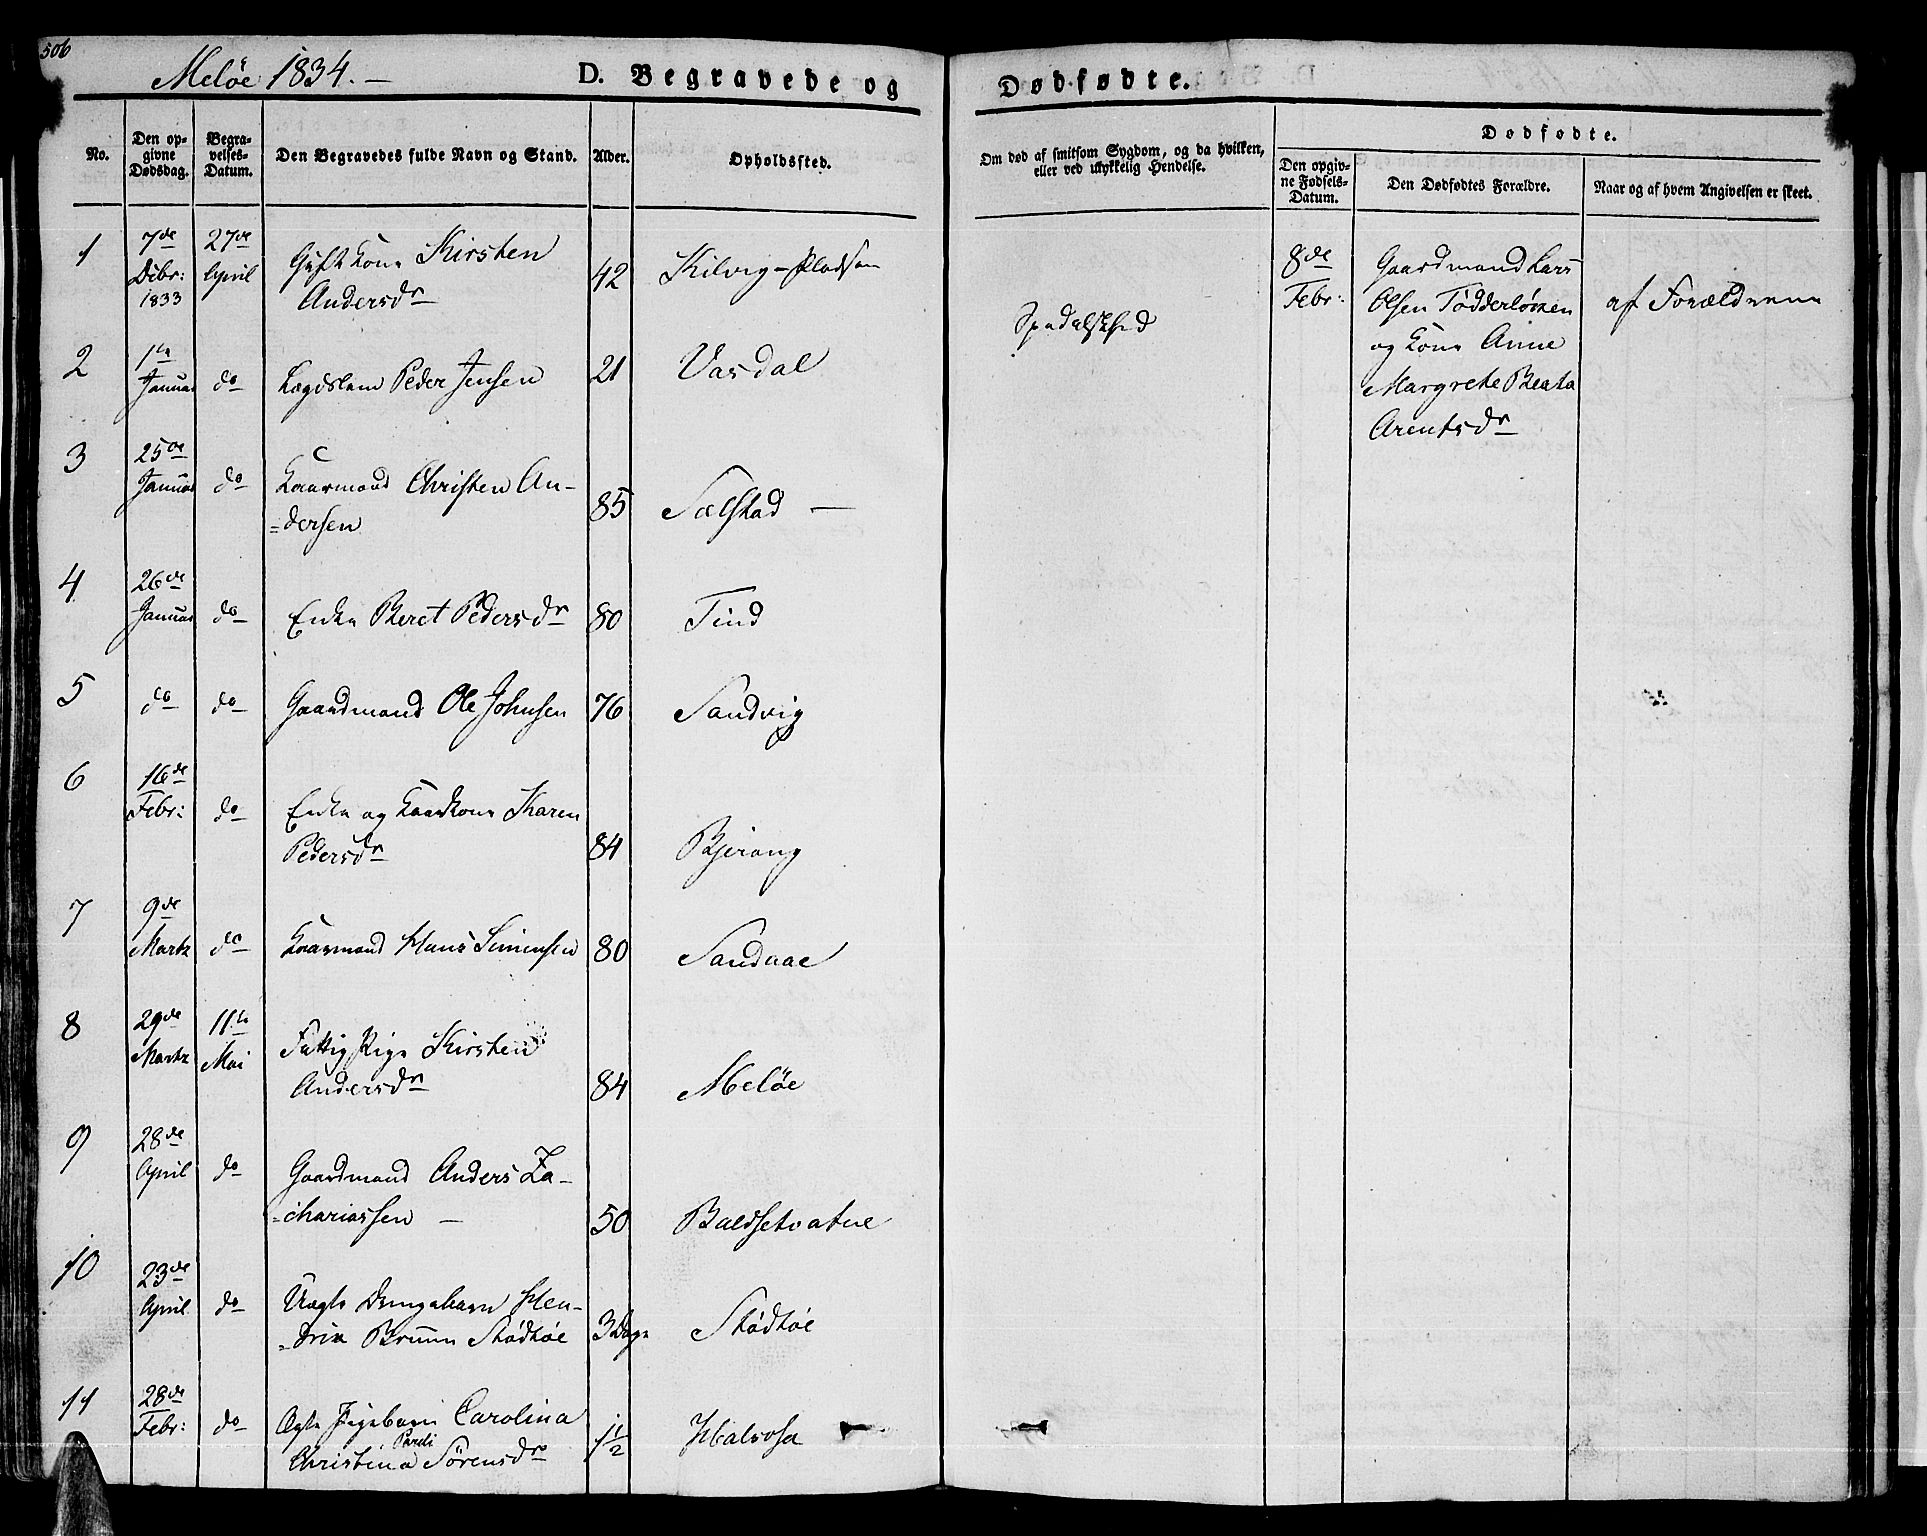 506
Meløe 1834. —
D. Begravede og
Dødfødte.
No.
Den op-
givne
Dødsdag.
Begra-
velses-
Datum.
Den Begravedes fulde Navn og Stand.
Alder.
Opholdssted.
Om død af smitsom Sygdom, og da hvilken,
eller ved ulykkelig Hendelse.
Dødfødte.
Den opgiv-
ne Fødsels-
Datum.
Den Dødfødtes Forældre.
Naar og af hvem Angivelsen er skeet.
1 7de 27de
Debr: April Gift Kone Kirsten
1833 Andersdr 42 Kilvig-Pladsen
2 1te
Januar do Lægdslem Peder Jensen 21 Vasdal
Spedalskhed
3 25de
Januar do Kaarmand Christen An-
=dersen 85 Sælstad —
4 26de
Januar do Enke Beret Pedersdr 80 Tind
5 do do Gaardmand Ole Johnsen 76 Sandvig
6 16de
Febr: do Enke og Kaarkone Karen
Pedersdr 84 Bjerang
7 9de
Martz do Kaarmand Hans Simensen 80 Sandaae
8 29de 11te
Martz Mai Fattig Pige Kirsten
Andersdr 84 Meløe
9 28de
April do Gaardmand Anders Za-
=chariassen — 50 Baldsetvatne
10 23de
April do Uægte Drengebarn Hen-
=drik Bruun Stødtøe 3 Dage Stødtøe
11 28de
Febr: do Ægte Pigebarn Carolina
Christina Pardi Sörensdr 1½ Halsosa
8de
Febr:
Gaardmand Lars
Olsen Tødderlöixen
og Kone Anne
Margrete Beata
Arentsdr
af Forældrene